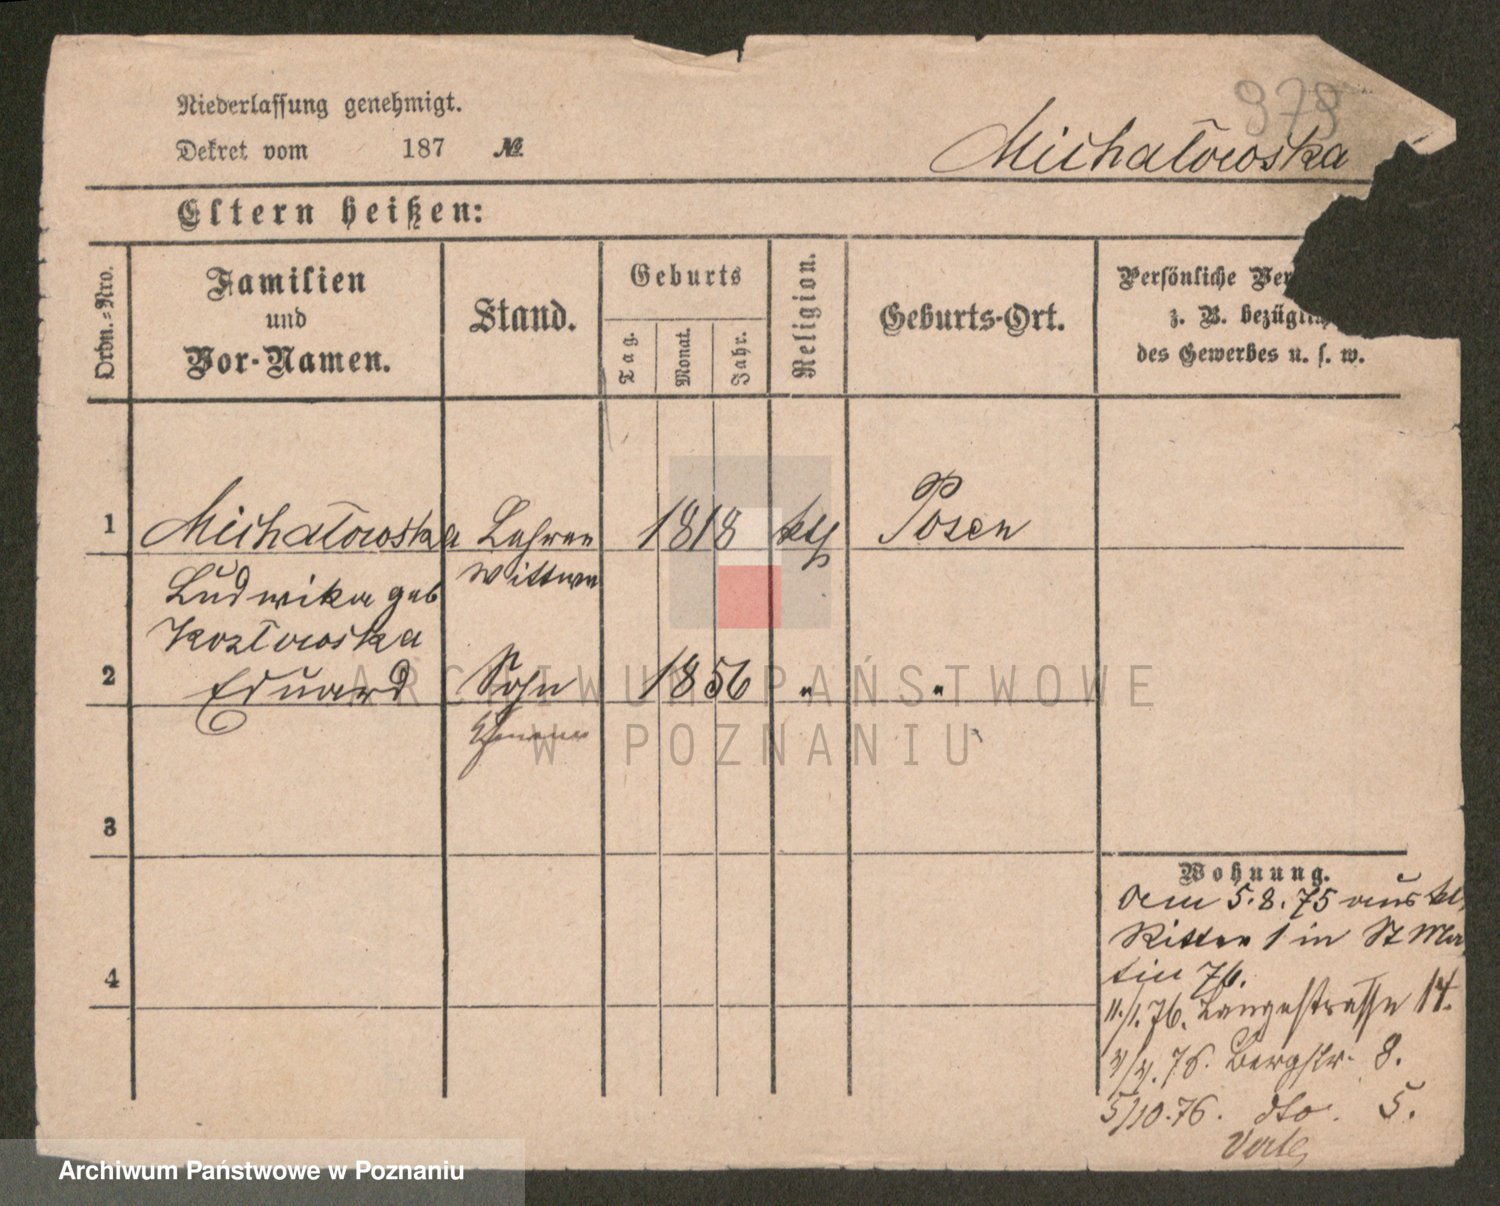 Niederlassung genehmigt.
979
Dekret vom 187 №
Michałowska
Eltern heißen:
Ordn.-Nro.
Familien
und
Vor-Namen.
Stand.
Geburts
Tag.
Monat.
Jahr.
Religion.
Geburts-Ort.
Persönliche Ver
z. B. bezügli
des Gewerbes u. s. w.
1 Michałowska Lehrer 1818 kth Posen
Wittwe
Ludwika geb
Kozłowska
2 Eduard Sohn 1856 " "
3
Wohnung.
Dem 5.8.75 aus kl.
Ritter 1 in St Mar
tin 76.
4
11./1.76. Langestrasse 14.
Bergstr. 8.
5/10.76. dto. 5.
ARCHIWUM PAŃSTWOWE
W POZNANIU
Archiwum Państwowe w Poznaniu